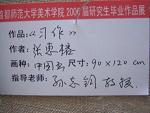 首都师范大学美术学院2006届研究生毕业作品展
作品:《习作》
作者: 张惠楷
画种: 中国画, 尺寸: 90×120cm
指导老师: 孙志钧 教授